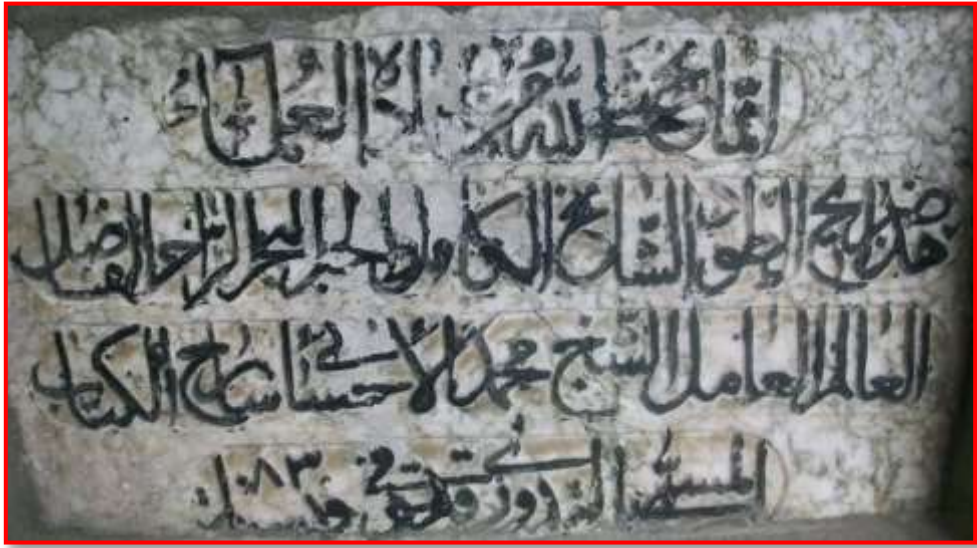 انما يخشى الله من عباده العلماء
هذا ضريح الطود الشامخ الكامل والحبر البحر الزاخر الفاضل
العالم العامل الشيخ محمد الاحسائي شارح الكتاب
المسمى سنة ١٠٨٣